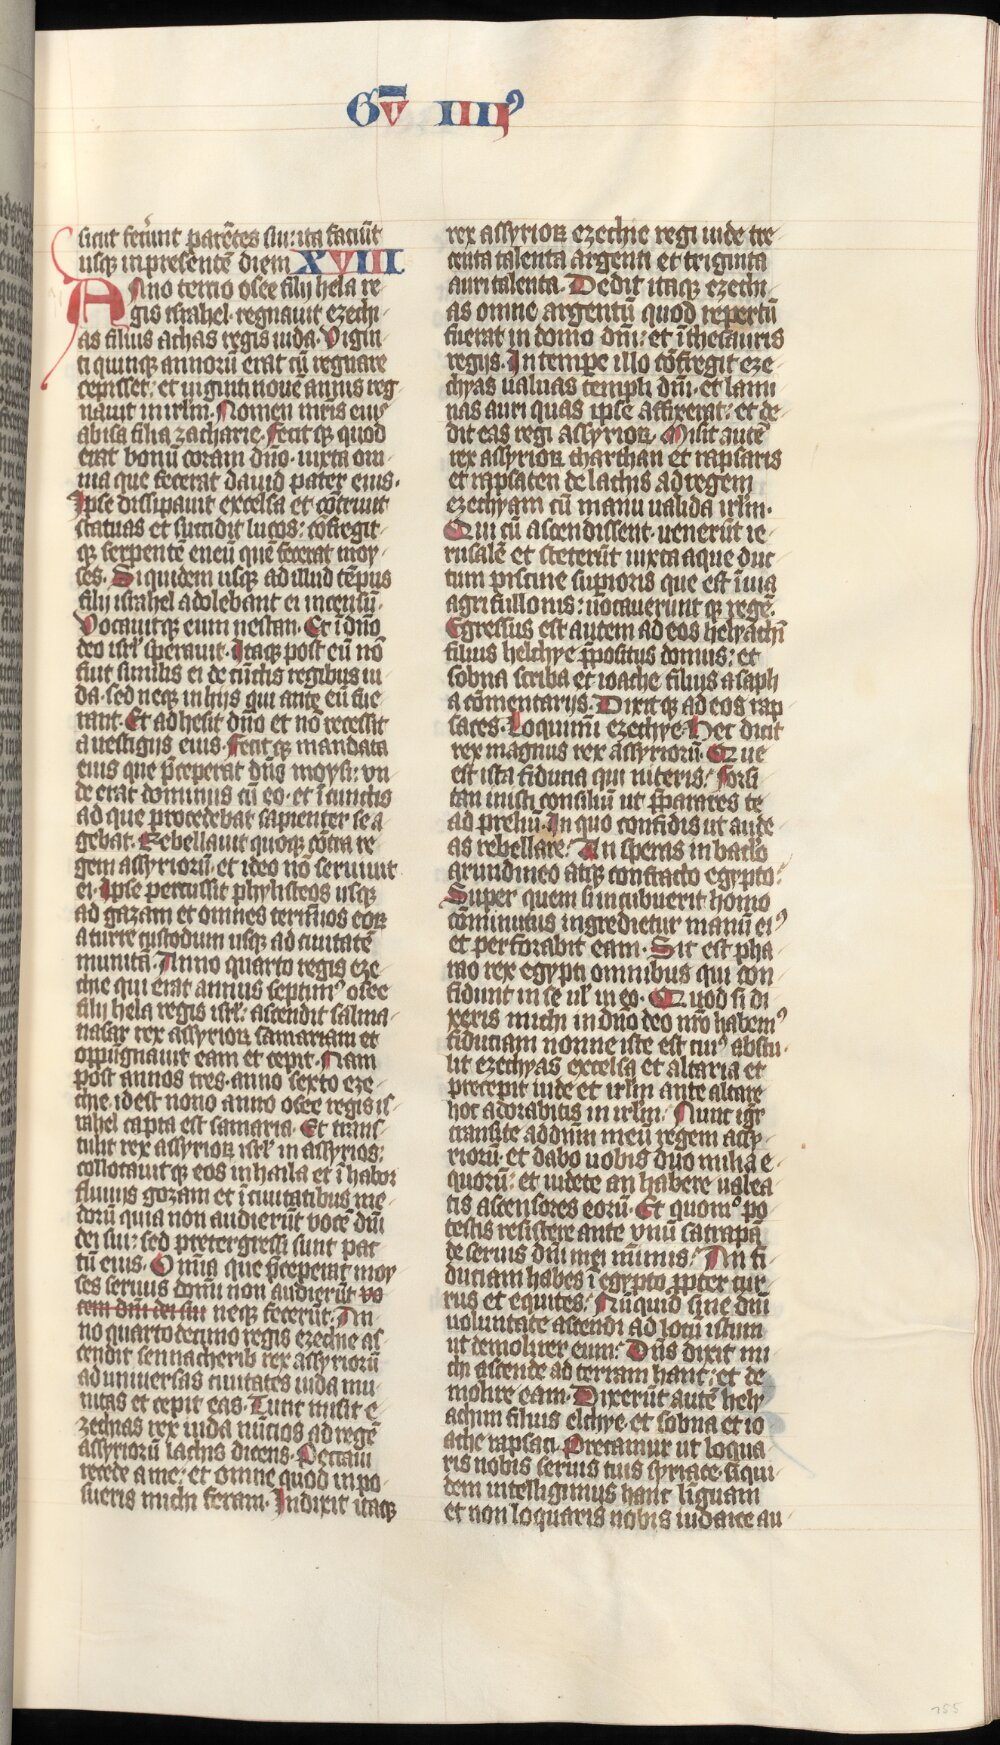 Gv̅ IIIIꝰ
sicut fecerunt parētes sui: ita faciūt
usqꝫ in presentē diem XVIII
Anno tertio osee filij hela re
gis israhel· regnauit ezechi
as filius achas regis iuda· Vigin
ti quinqꝫ annorū erat cū regnare
cepisset: et uiginti nouē annis reg
nauit in irlm̄· Nomen mr̄is eiuꝰ
abisa filia zacharie· Fecit qꝫ quod
erat bonū coram dn̄o· iuxta om
nia que fecerat dauid pater eius·
Ipse dissipauit excelsa et cōtriuit
statuas et succidit lucos: cōfregit
qꝫ serpentē eneū quē fecerat moy
ses· Siquidem usqꝫ ad illud tēpus
filij israhel adolebant ei incensū·
Vocauitqꝫ eum nestan· Et ī dn̄o
deo isrl̄ sperauit· Itaqꝫ post eū nō
fuit similis ei de cūctis regibus iu
da· sed neqꝫ in hijs qui ante eū fue
rant· Et adhesit dn̄o et nō recessit
a uestigijs eius· fecit qꝫ mandata
eius que p̄ceperat dn̄s moysi: vn
de erat dominus cū eo· et ī cunctis
ad que procedebat sapienter se a
gebat· Rebellauit quoqꝫ cōtra re
gem assyriorū· et ideo nō seruiuit
ei· Ipse percussit phylisteos usqꝫ
ad gazam et omnes termīos eoꝝ
a turre custodum usqꝫ ad ciuitatē
munitā· Anno quarto regis eze
chie qui erat annus septimꝰ osee
filij hela regis isrl̄: ascendit salma
nasar rex assyrioꝝ samariam et
oppugnauit eam et cepit· Nam
post annos tres· anno sexto eze
chie· id est nono anno osee regis is
rahel capta est samaria· Et trans
tulit rex assyrioꝝ isrl̄ in assyrios:
collocauit qꝫ eos in haila et ī habor
fluuijs gozam et ī ciuitatibus me
dorū quia non audierūt vocē dn̄i
dei sui: sed pretergressi sunt pac
tū eius· Omīa que p̄ceperat moy
ses seruus domī non audierūt vo
cem dn̄i dei sui neqꝫ fecerūt· An
no quarto decimo regis ezechie as
cendit sennacherib rex assyriorū
ad uniuersas ciuitates iuda mu
nitas et cepit eas· Tunc misit e
zechias rex iuda nūcios ad regē
assyriorū lachis dicens· Peccaui
recede a me: et omne quod inpo
sueris michi feram· Indixit itaqꝫ
rex assyrioꝝ ezechie regi iude tre
centa talenta argenti et triginta
auri talenta· Dedit itaqꝫ ezechi
as omne argentū quod repertū
fuerat in domo dn̄i: et ī thesauris
regijs· In tempe illo cōfregit eze
chyas ualuas templi dn̄i· et lami
nas auri quas ipse affixerat: et de
dit eas regi assyrioꝝ· Misit autē
rex assyrioꝝ tharthan et rapsaris
et rapsacen de lachis ad regem
ezechyam cū manu ualida irlm̄·
Qui cū ascendissent· uenerūt ie
rusalē et steterūt iuxta aque duc
tum piscine superioris que est ī uia
agri fullonis: uocauerunt qꝫ regē·
Egressus est autem ad eos helyachī
filius helchye p̄positus domus: et
sobna scriba et ioache filius asaph
a cōmentarijs· Dixit qꝫ ad eos rap
saces· Loquimī ezechye· Hec dicit
rex magnus rex assyriorū· Que
est ista fiducia qui niteris: Forsi
tan inisti consiliū ut p̄pares te
ad preliū· In quo confidis ut aude
as rebellare: An speras in baclo
arundineo atqꝫ confracto egypto:
Super quem si incubuerit homo
cōminutus ingredietur manū eiꝰ
et perforabit eam· Sic est pha
rao rex egypti omnibus qui con
fidunt in se ul̄ in eo· Quod si di
xeris michi in dn̄o deo nr̄o habemꝰ
fiduciam nonne iste est cuiꝰ abstu
lit ezechyas excelsa et altaria et
precepit iude et irlm̄ ante altare
hoc adorabitis in irlm̄: Nunc igr̄
transite ad dn̄m meū regem assy
riorū· et dabo uobis duo milia e
quorū: et uidete an habere ualea
tis ascensores eorū· Et quomꝰ po
testis resistere ante vnū satrapā
de seruis dn̄i mei mīmis: An fi
duciam habes ī egypto ꝓpter cur
rus et equites: Nūquid sine dn̄i
uoluntate ascendi ad locū istum
ut demolirer eum: Dn̄s dixit mi
chi ascende ad terram hanc: et de
molire eam· Dixerūt autē hely
achim filius elchye· et sobna et io
ache rapsaci· Precamur ut loqua
ris nobis seruis tuis syriace· siqui
dem intelligimus hanc liguam
et non loquaris nobis iudaice au
155